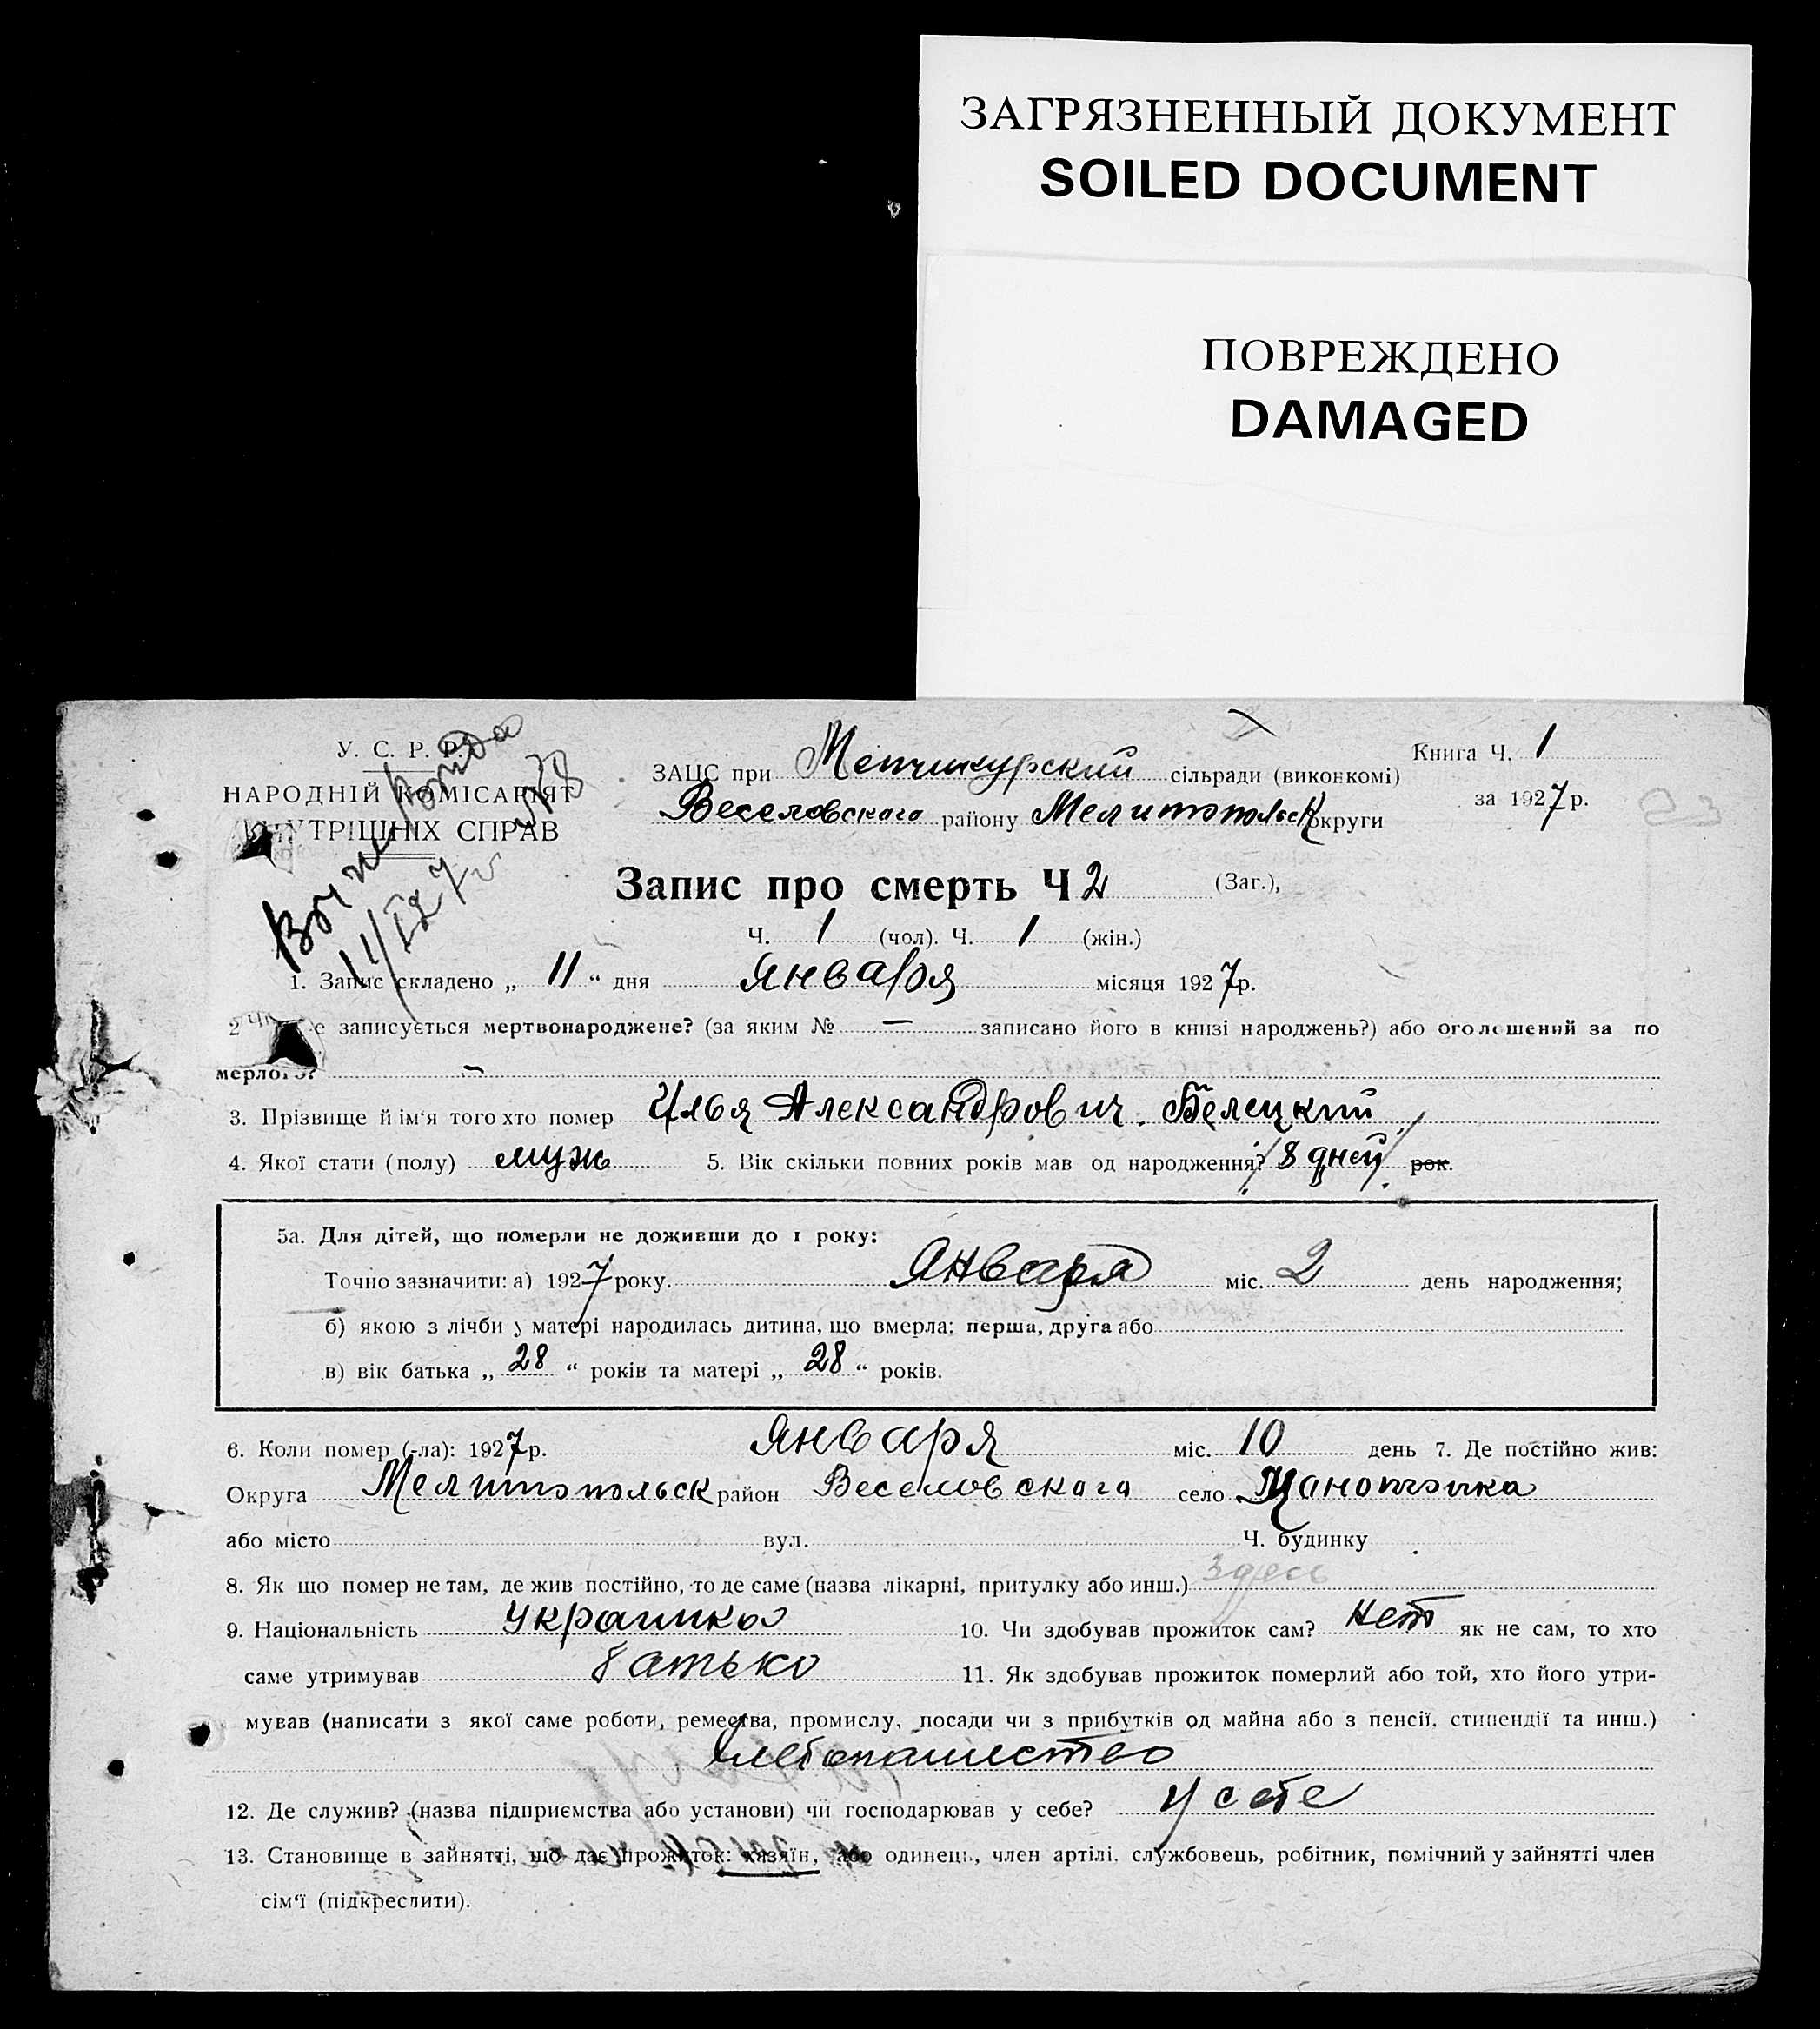 ЗАГРЯЗНЕННЫЙ ДОКУМЕНТ
SOILED DOCUMENT
ПОВРЕЖДЕНО
DAMAGED
У. С. Р. Р.
НАРОДНІЙ КОМІСАРІЯТ
ВНУТРІШНІХ СПРАВ
ЗАЦС при Менчикурский сільради (виконкомі)
Веселовского району Мелитопольск округи
Книга Ч. 1
за 1927 р.
Запис про смерть Ч 2 (Заг.),
Ч. 1 (чол). Ч. 1 (жін.)
1. Запис складено „ 11 “ дня Января місяця 1927 р.
2 Чи не записується мертвонароджене? (за яким № — записано його в книзі народжень?) або оголошений за по
мерлого? —
3. Прізвище й ім‘я того хто помер Илья Александрович. Белецкий
4. Якої стати (полу) муж 5. Вік скільки повних років мав од народження? 8 дней рок.
5а. Для дітей, що померли не доживши до 1 року:
Точно зазначити: а) 1927 року. Января міс. 2 день народження;
б) якою з лічби у матері народилась дитина, що вмерла: перша, друга або
в) вік батька „ 28 “ років та матері „ 28 “ років.
6. Коли помер (-ла): 1927 р. Января міс. 10 день 7. Де постійно жив:
Округа Мелитопольск район Веселовскаго село
або місто вул. Ч. будинку
8. Як що помер не там, де жив постійно, то де саме (назва лікарні, притулку або инш.) Здесь
9. Національність Украинка 10. Чи здобував прожиток сам? Нет як не сам, то хто
саме утримував батько 11. Як здобував прожиток померлий або той, хто його утри-
мував (написати з якої саме роботи, ремества, промислу, посади чи з прибутків од майна або з пенсії, стипендії та инш.)
хлебопашество
12. Де служив? (назва підприємства або установи) чи господарював у себе? у себе
13. Становище в зайнятті, що дає прожиток: хазяїн, або одинець, член артілі, службовець, робітник, помічний у зайнятті член
сім‘ї (підкреслити).